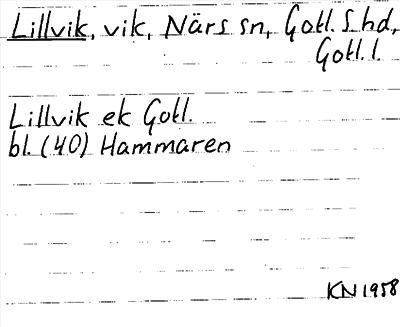 Lillvik, vik, Närs sn, Gotl. S. hd,
Gotl. l.
Lillvik ek Gotl.
bl. (40) Hammaren
KN 1958